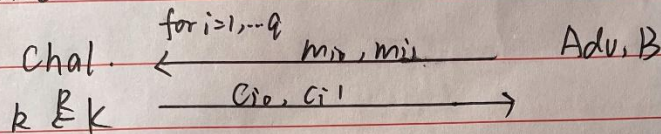 for i=1,...q
Chal. ← mi0, mi1 Adv, B
k ←R K → Ci0, Ci1